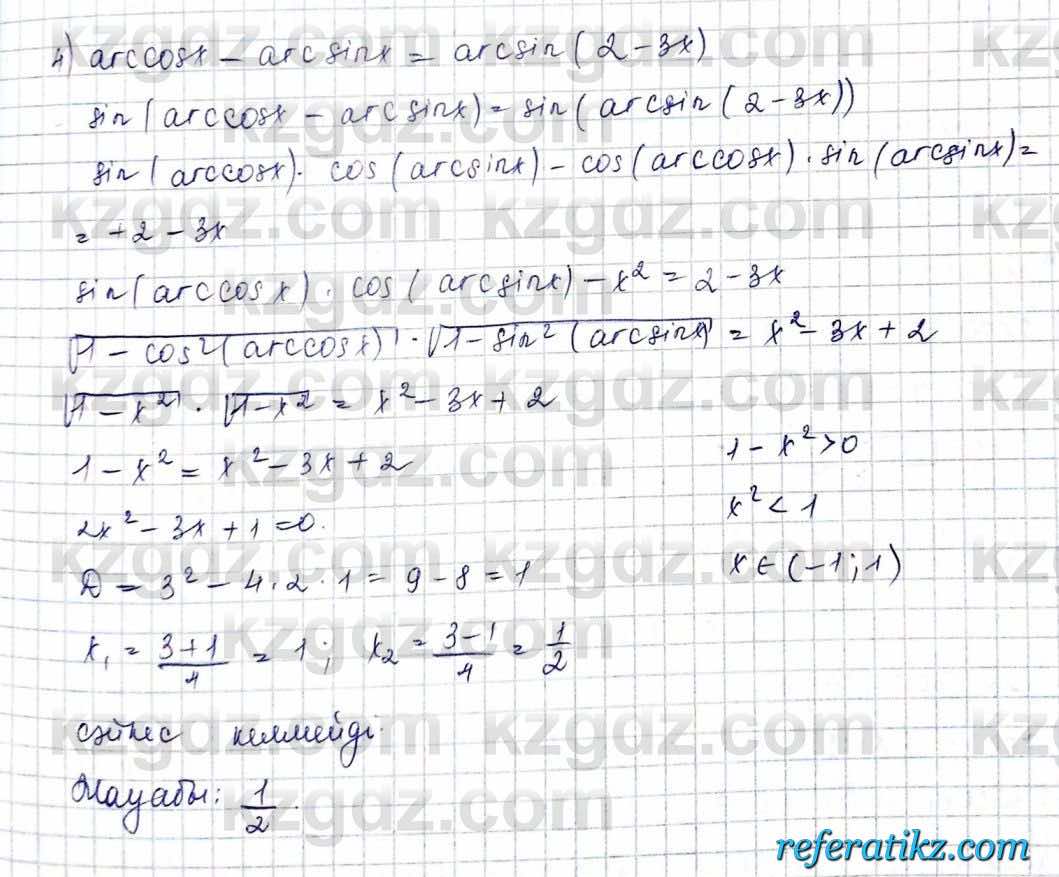 4) arccosx – arcsinx = arcsin(2 – 3x)
sin(arccosx – arcsinx) = sin(arcsin(2 – 3x))
sin(arccosx) · cos(arcsinx) – cos(arccosx) · sin(arcsinx) =
= +2 – 3x
sin(arccosx) · cos(arcsinx) – x² = 2 – 3x
√(1 – cos²(arccosx)) · √(1 – sin²(arcsinx)) = x² – 3x + 2
√(1 – x²) · √(1 – x²) = x² – 3x + 2
1 – x² = x² – 3x + 2
1 – x² > 0
2x² – 3x + 1 = 0.
x² < 1
D = 3² – 4 · 2 · 1 = 9 – 8 = 1
x ∈ (–1; 1)
x₁ = (3+1)/4 = 1; x₂ = (3–1)/4 = 1/2
сәйкес келмейді.
Жауабы: 1/2.
kzgdz.com
referatikz.com